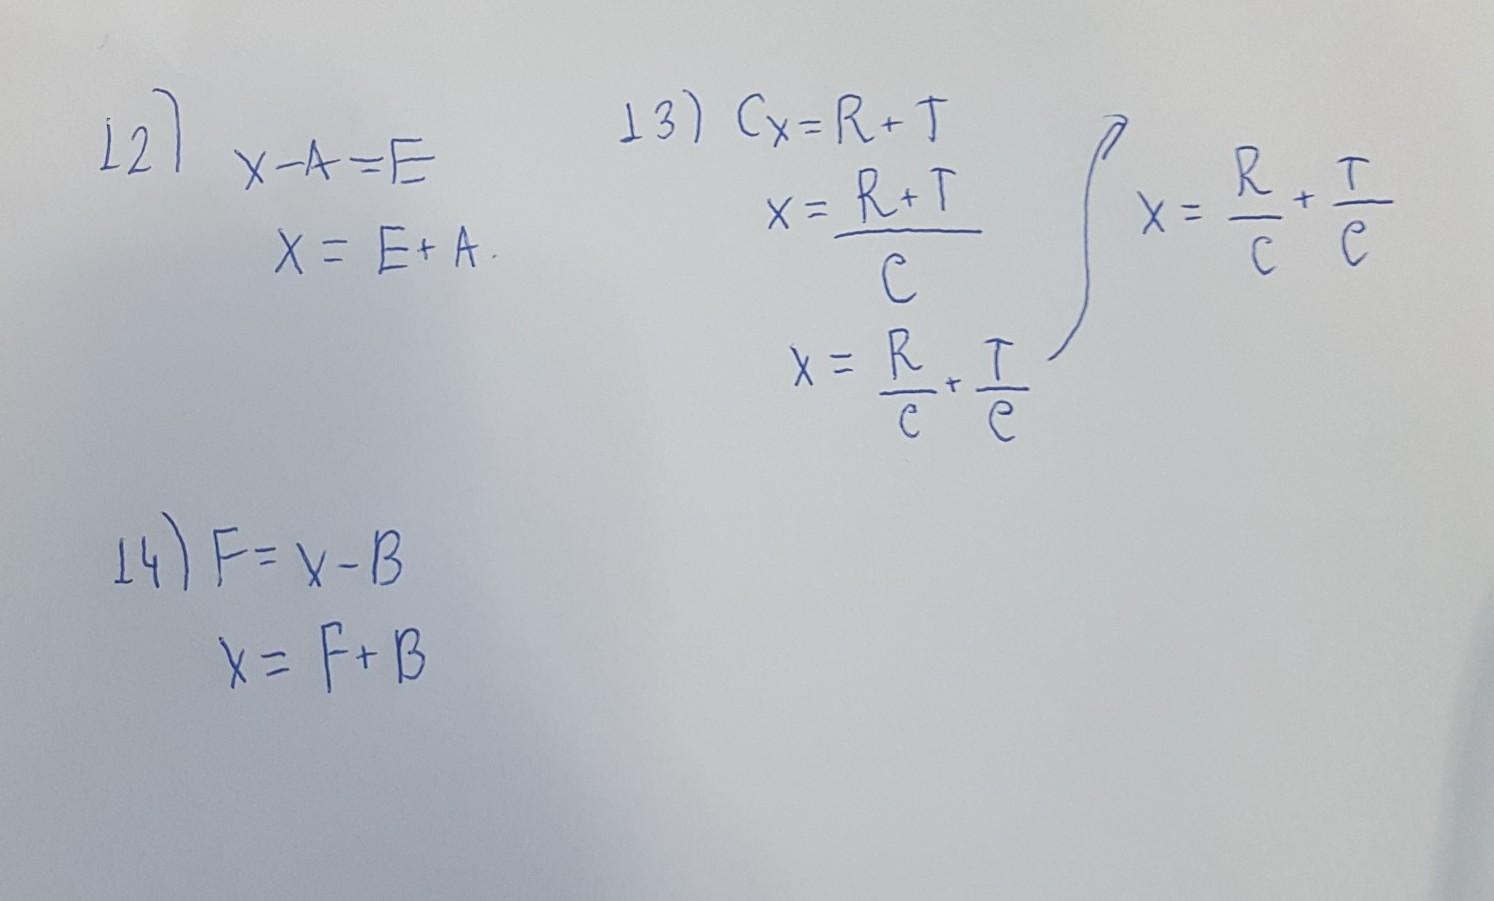 12) x-A=E
x = E+A.
13) Cx=R+T
x = R+T / C
x = R/C + T/C
x = R/C + T/C
14) F=x-B
x = F+B